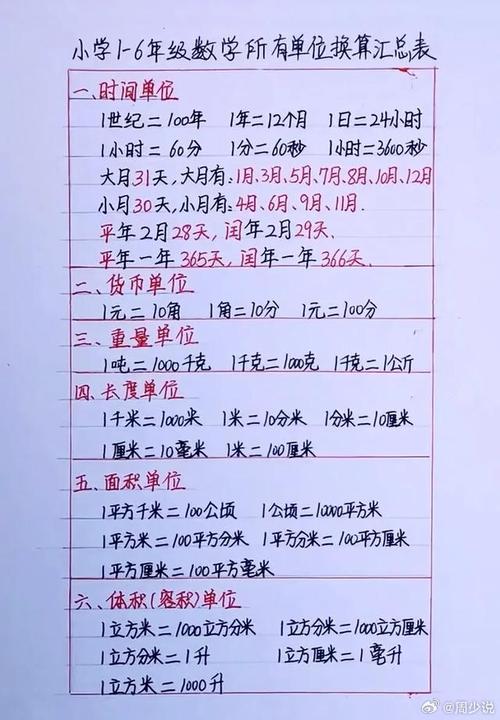 小学1-6年级数学所有单位换算汇总表
一、时间单位
1世纪=100年 1年=12个月 1日=24小时
1小时=60分 1分=60秒 1小时=3600秒
大月31天,大月有:1月、3月、5月、7月、8月、10月、12月
小月30天,小月有:4月、6月、9月、11月.
平年2月28天,闰年2月29天.
平年一年365天,闰年一年366天.
二、货币单位
1元=10角 1角=10分 1元=100分
三、重量单位
1吨=1000千克 1千克=1000克 1千克=1公斤
四、长度单位
1千米=1000米 1米=10分米 1分米=10厘米
1厘米=10毫米 1米=100厘米
五、面积单位
1平方千米=100公顷 1公顷=10000平方米
1平方米=100平方分米 1平方分米=100平方厘米
1平方厘米=100平方毫米
六、体积(容积)单位
1立方米=1000立方分米 1立方分米=1000立方厘米
1立方分米=1升 1立方厘米=1毫升
1立方米=1000升
@周少说